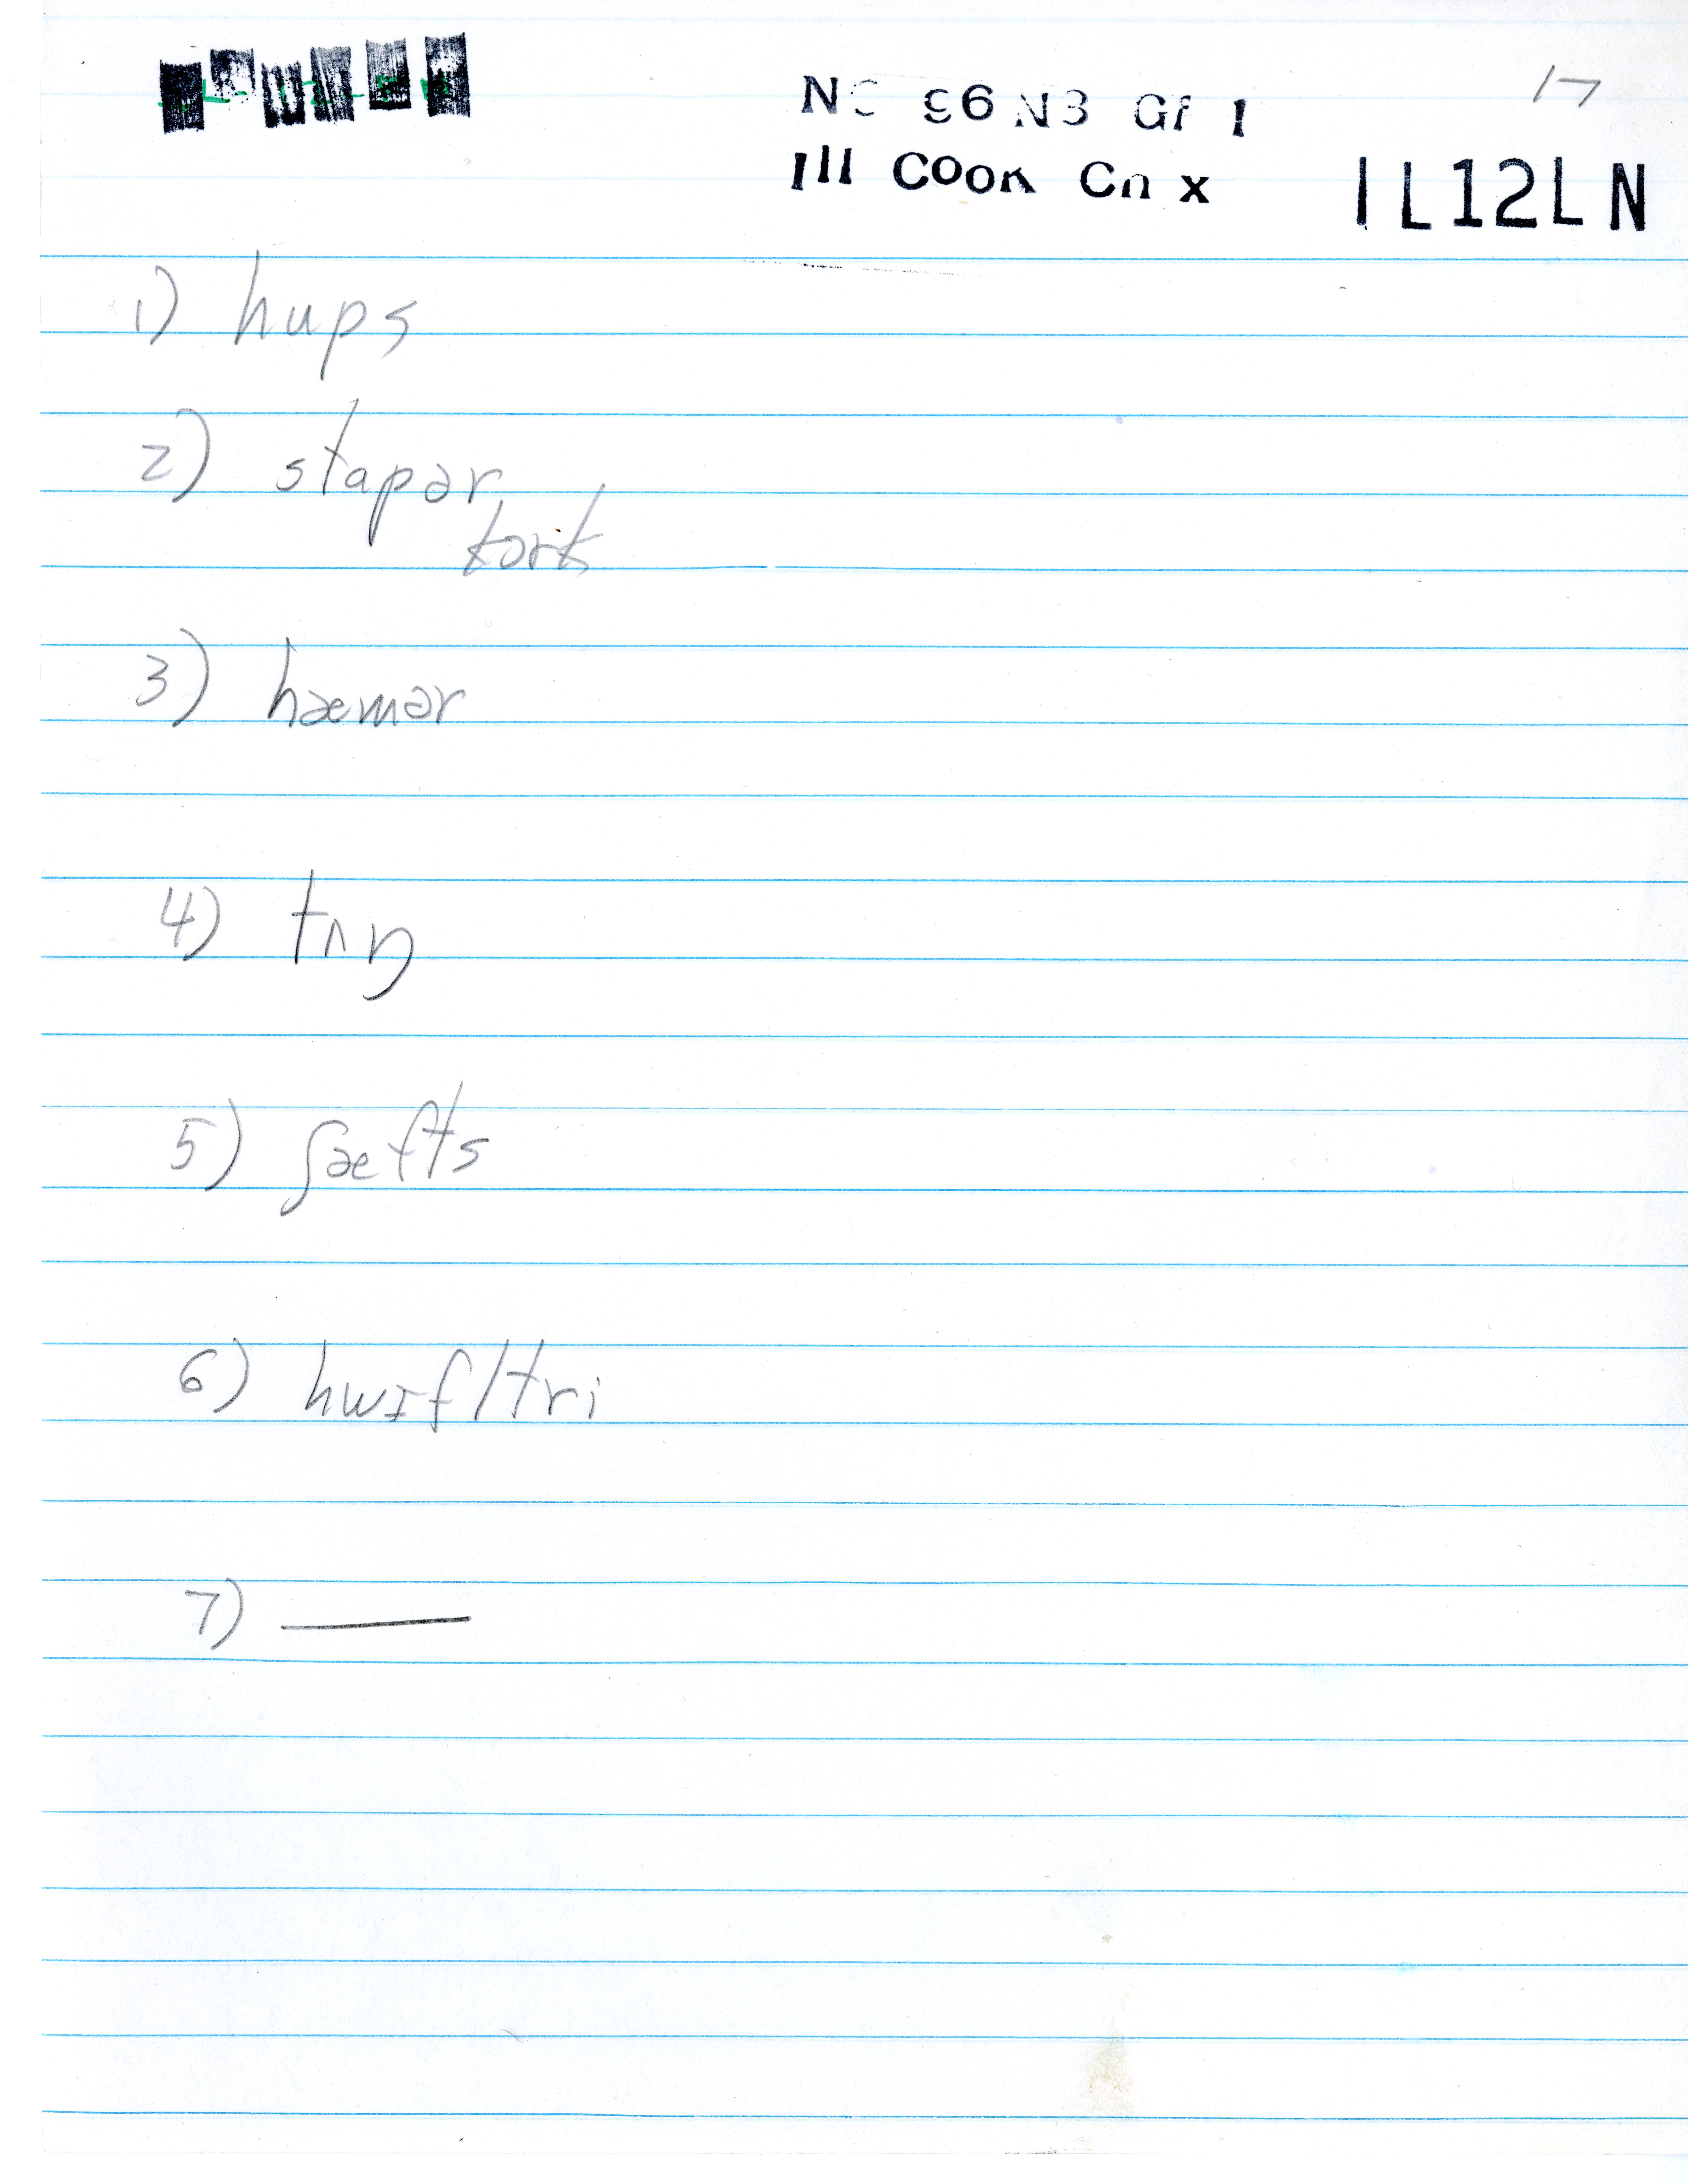 17
Ill Cook Cn x
IL12LN
1) hups
2) stapər
tork
3) hæmər
4) tʌŋ
5) ʃæfts
6) hwɪfltri
7) —